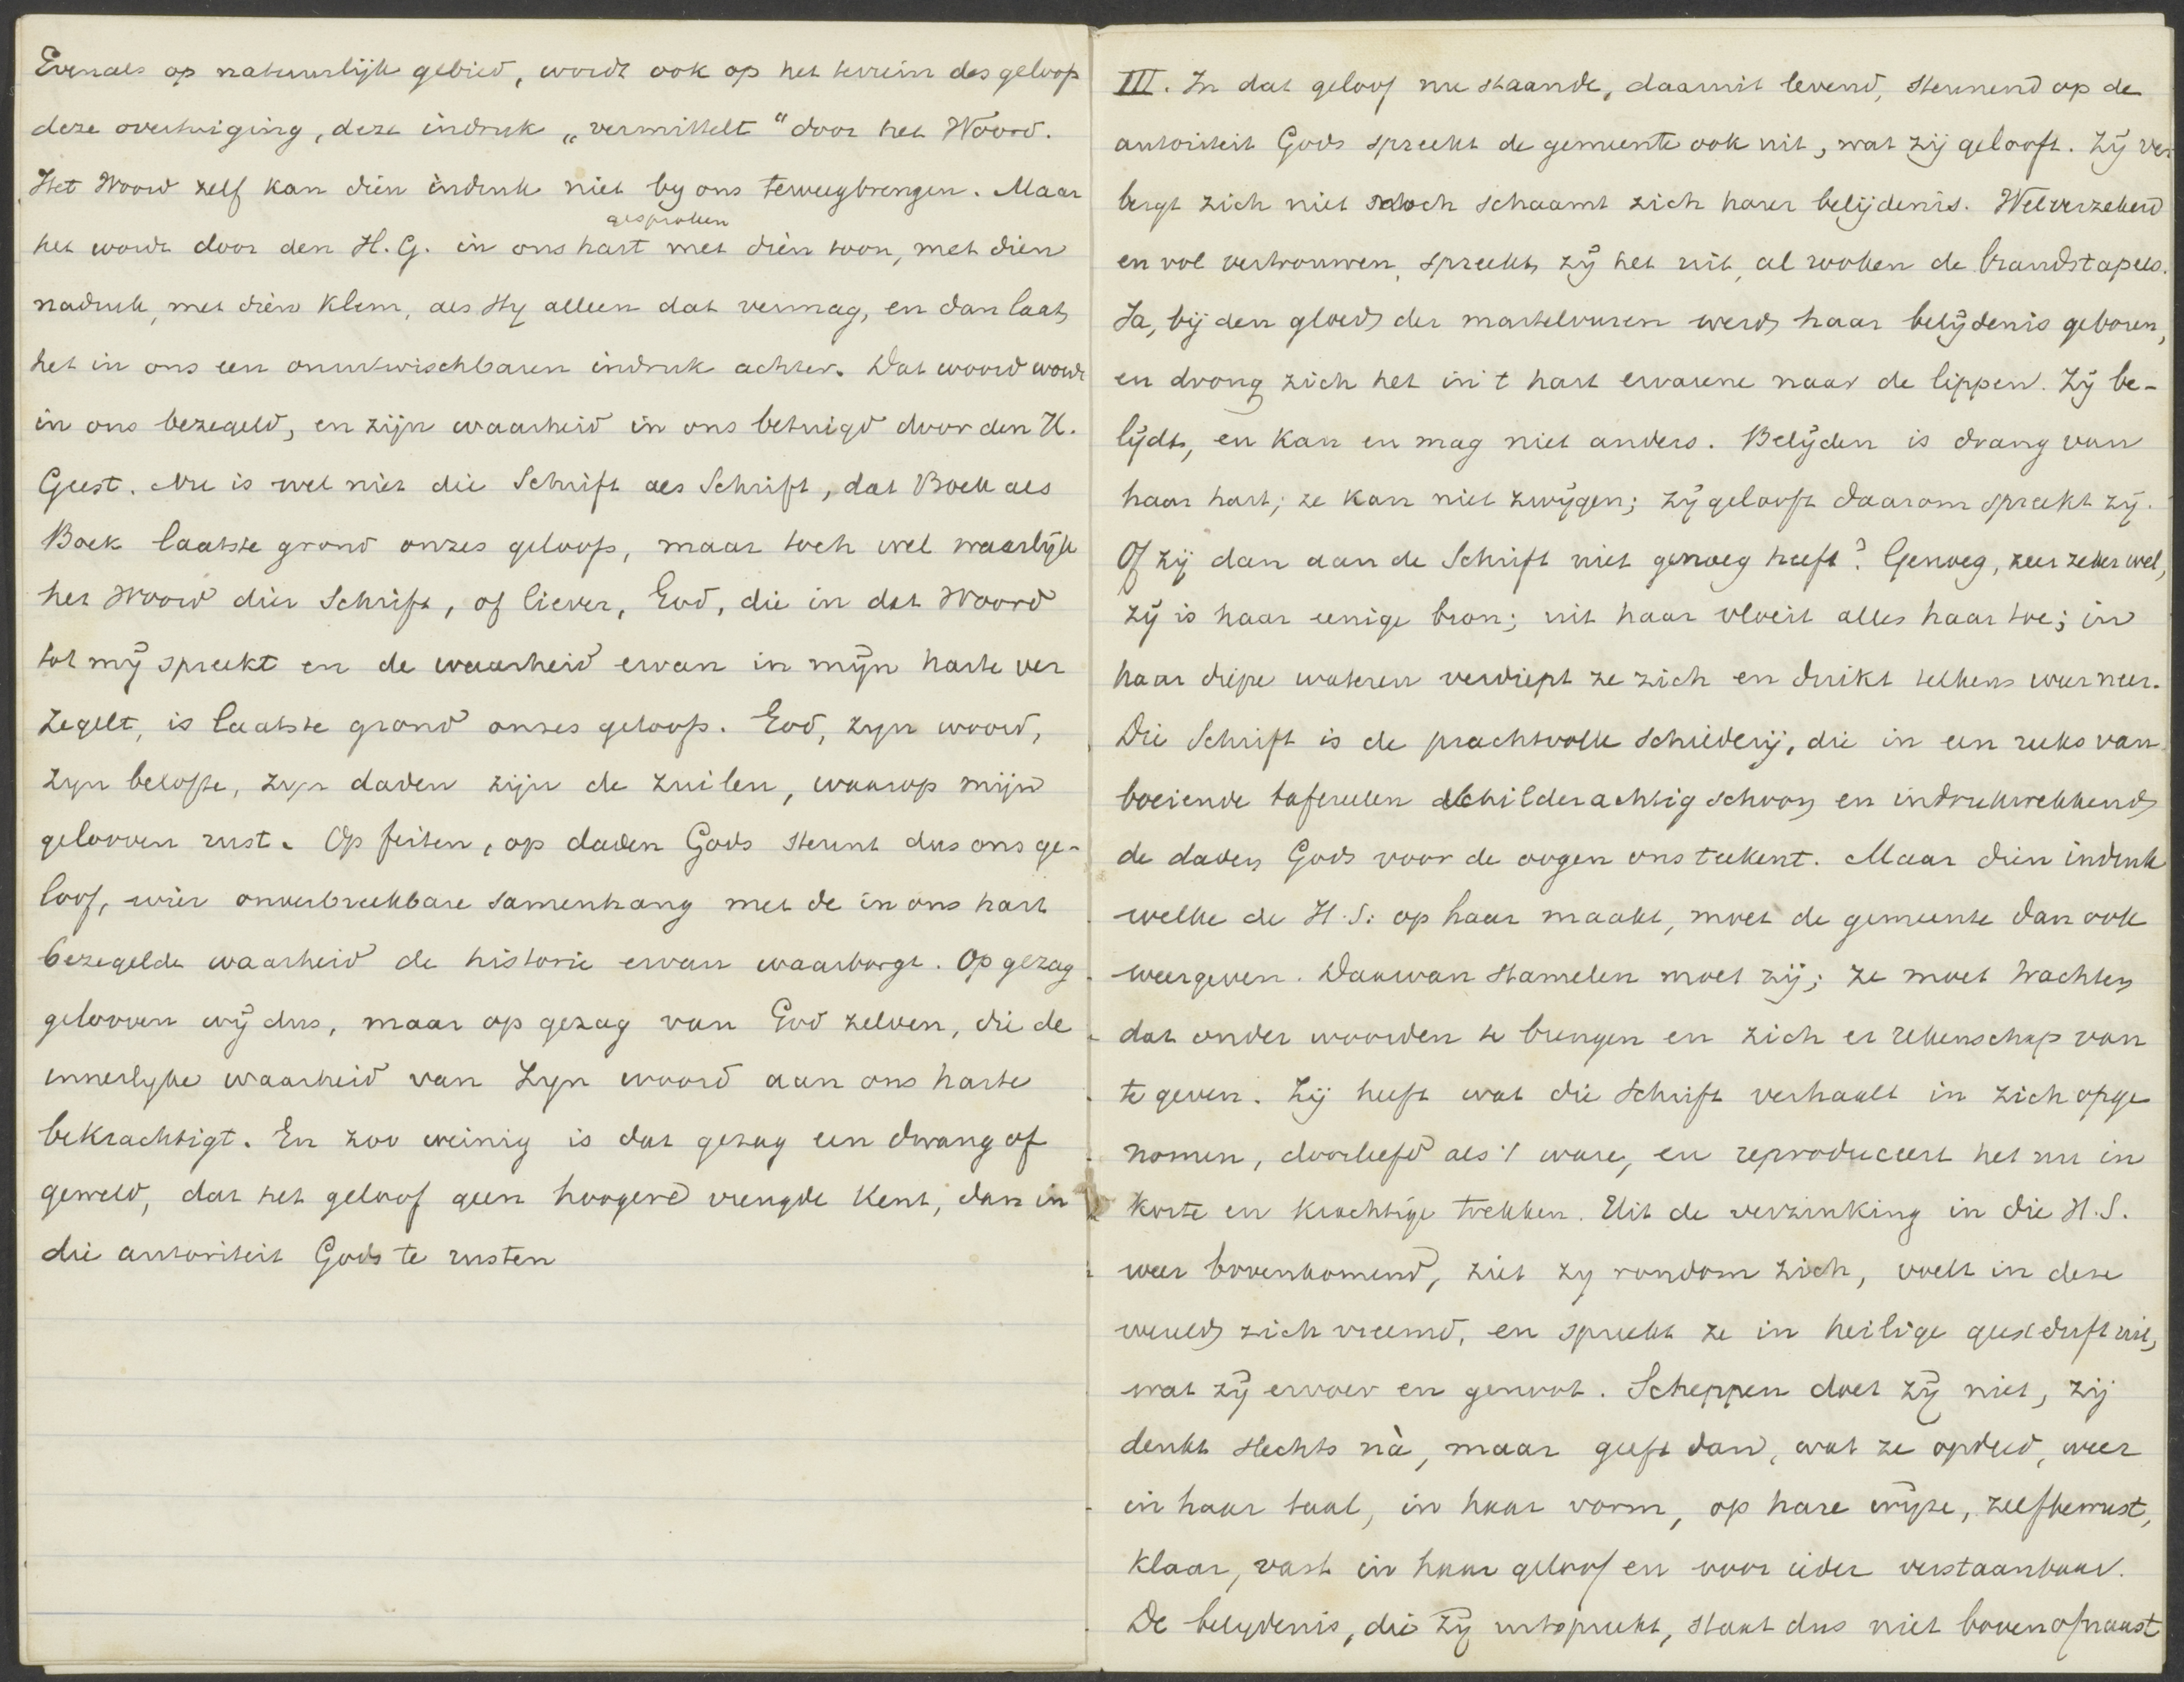 Evenals op natuurlijk gebied, wordt ook op het terrein des geloofs
deze overtuiging, deze indruk „vermittelt" door het Woord.
Het Woord zelf kan dien indruk niet by ons teweegbrengen. Maar
gesproken
het wordt door den H.G. in ons hart met dien toon, met dien
nadruk, met dien klem, als Hy alleen dat vermag, en dan laat
het in ons een onuitwischbaren indruk achter. Dat woord wordt
in ons bezegeld, en zijn waarheid in ons betuigd door den H.
Geest. Nu is wel niet die Schrift als Schrift, dat Boek als
Boek laatste grond onzes geloofs, maar toch wel waarlijk
het Woord dier Schrift, of liever, God, die in dat Woord
tot mij spreekt en de waarheid ervan in mijn harte ver
zegelt, is laatste grond onzes geloofs. God, zyn woord,
zyn belofte, zyn daden zijn de zuilen, waarop mijn
gelooven rust. Op feiten, op daden Gods steunt dus ons ge-
loof, wier onverbreekbare samenhang met de in ons hart
bezegelde waarheid de historie ervan waarborgt. Op gezag
gelooven wij dus, maar op gezag van God zelven, die de
innerlyke waarheid van Zyn woord aan ons harte
bekrachtigt. En zoo weinig is dat gezag een dwang of
geweld, dat het geloof geen hoogere vreugde kent, dan in
die autoriteit Gods te rusten
III. In dat geloof nu staande, daaruit levend, steunend op de
autoriteit Gods spreekt de gemeente ook uit, wat zij gelooft. Zij ver
bergt zich niet noch schaamt zich harer belijdenis. Welverzekerd
en vol vertrouwen, spreekt zij het uit, al rooken de brandstapels.
Ja, bij den gloed der martelvuren werd haar belijdenis geboren,
en drong zich het in 't hart ervarene naar de lippen. Zij be-
lijdt, en kan en mag niet anders. Belijden is drang van
haar hart; ze kan niet zwijgen; zij gelooft daarom spreekt zij.
Of zij dan aan de Schrift niet genoeg heeft? Genoeg, zeer zeker wel,
zij is haar eenige bron; uit haar vloeit alles haar toe; in
haar diepe wateren verdiept ze zich en duikt telkens weer neer.
Die Schrift is de prachtvolle schilderij, die in een reeks van
boeiende tafereelen schilderachtig schoon en indrukwekkend
de daden Gods voor de oogen ons teekent. Maar dien indruk
welke de H.S. op haar maakt, moet de gemeente dan ook
weergeven. Daarvan stamelen moet zij; ze moet trachten
dat onder woorden te brengen en zich er rekenschap van
te geven. Zij heeft wat die Schrift verhaalt in zich opge
nomen, doorleefd als 't ware, en reproduceert het nu in
korte en krachtige trekken. Uit de verzinking in die H.S.
weer bovenkomend, ziet zy rondom zich, voelt in deze
wereld zich vreemd, en spreekt ze in heilige geestdrift uit,
wat zij ervoer en genoot. Scheppen doet zij niet, zij
denkt slechts nà, maar geeft dan, wat ze opdeed, weer
in haar taal, in haar vorm, op hare wijze, zelfbewust,
klaar, vast in haar geloof en voor ieder verstaanbaar.
De belydenis, die zij uitspreekt, staat dus niet boven of naast